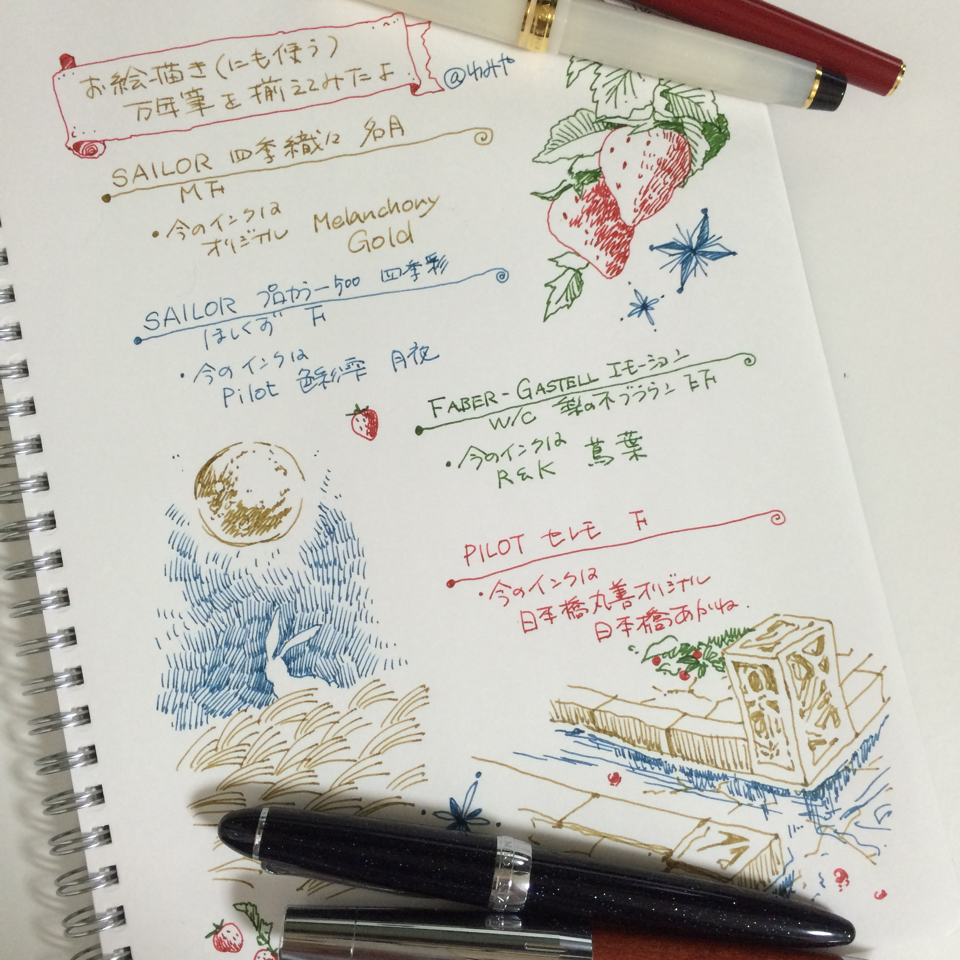 お絵描き(にも使う)
万年筆を揃えてみたよ
SAILOR 四季織々 名月
MF
・今のインクは
オリジナル Melanchony
Gold
SAILOR プロカラー500 四季彩
ほしくず F
・今のインクは
Pilot 色彩雫 月夜
FABER-GASTELL エモーション
W/C 梨の木ブラウン EF
・今のインクは
R&K 蔦葉
PILOT セレモ F
・今のインクは
日本橋丸善オリジナル
日本橋あかね.